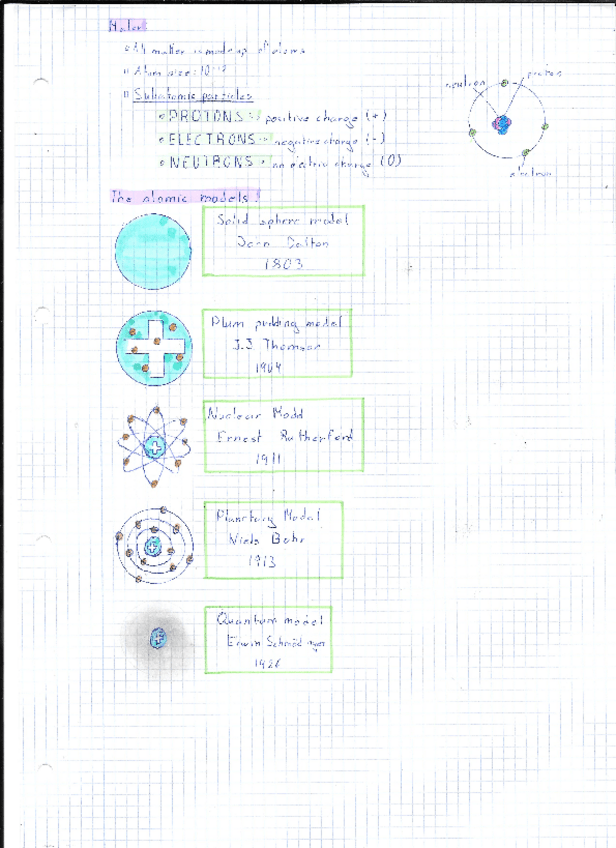 All matter is made up of atoms
Atom size: 10
Subatomic particles
PROTONS positive charge (+)
ELECTRONS negative charge (-)
NEUTRONS no electric charge (0)
neutron
proton
electron
The atomic models:
Solid sphere model
John Dalton
1803
Plum pudding model
J.J Thomson
1904
Nuclear Model
Ernest Rutherford
1911
Planetary Model
Niels Bohr
1913
Quantum model
Erwin Schrödinger
1926